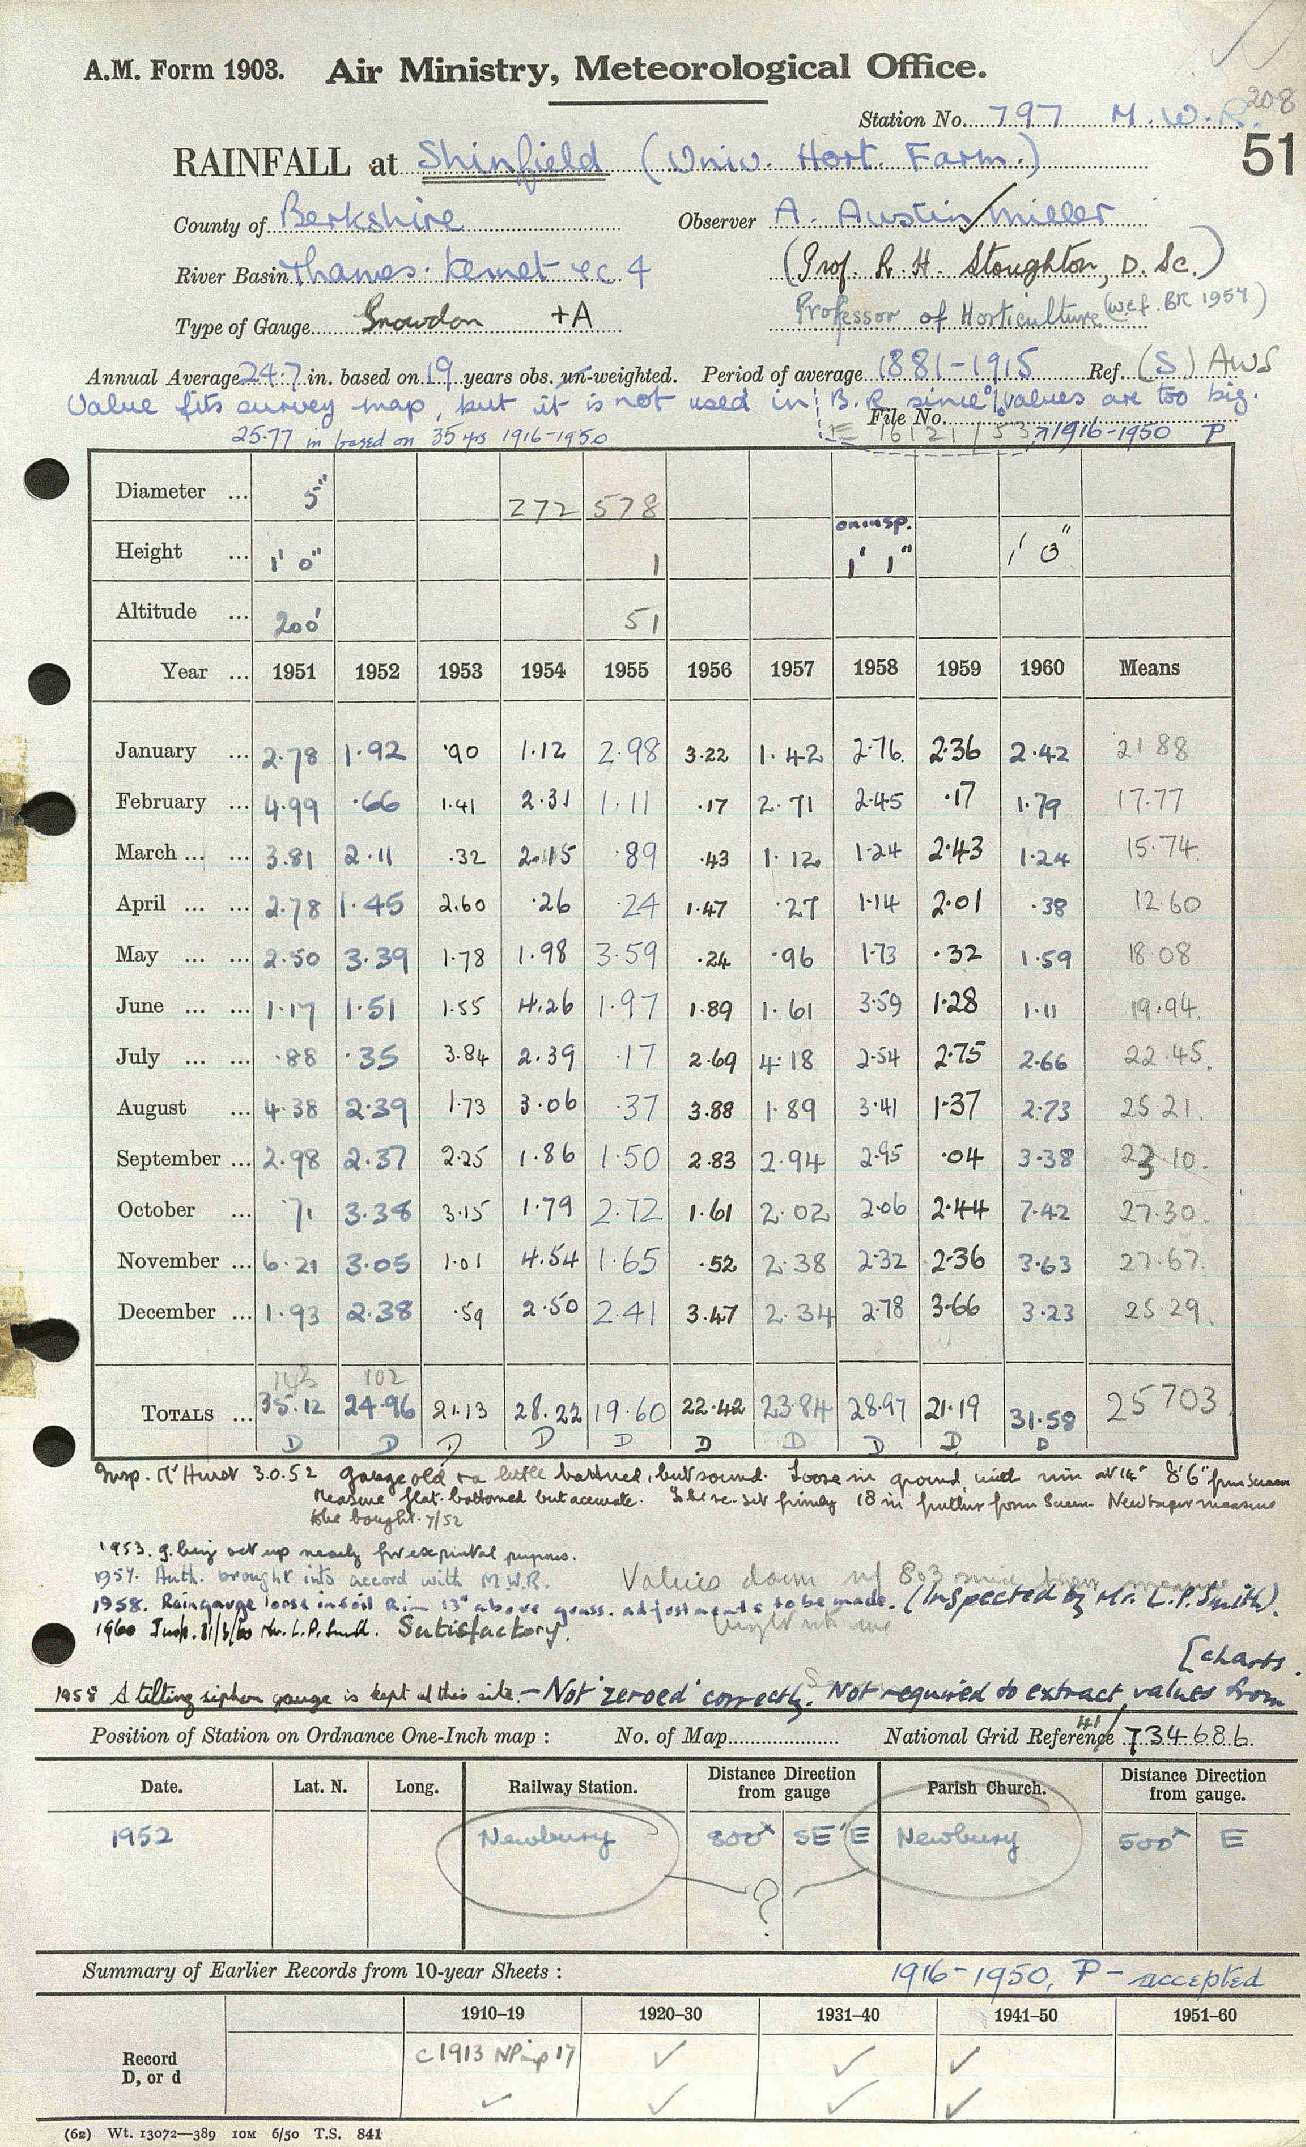 A.M. Form 1903. Air Ministry, Meteorological Office.
208
Station No. 797 M.W.R.
51
RAINFALL at Shinfield (Univ. Hort. Farm.)
County of Berkshire Observer A. Austin Miller
River Basin Thames. Kennet &c 4 (Prof. R. H. Stoughton, D. Sc.)
Type of Gauge Snowdon +A Professor of Horticulture (w.e.f. BR 1954)
Annual Average 24.7 in. based on 19 years obs. un-weighted. Period of average 1881-1915 Ref. (S) AWS
Value fits survey map, but it is not used in B.R since % values are too big.
File No.
25.77 in based on 35 yrs 1916-1950 1916-1950 P
Diameter ... 5" 272 578
Height ... 1' 0" 1 on insp. 1' 1" 1' 0"
Altitude ... 200' 51
Year ... 1951 1952 1953 1954 1955 1956 1957 1958 1959 1960 Means
January ... 2.78 1.92 .90 1.12 2.98 3.22 1.42 2.76 2.36 2.42 21 88
February ... 4.99 .66 1.41 2.31 1.11 .17 2.71 2.45 .17 1.79 17.77
March ... ... 3.81 2.11 .32 2.15 .89 .43 1.12 1.24 2.43 1.24 15.74
April ... ... 2.78 1.45 2.60 .26 .24 1.47 .27 1.14 2.01 .38 12 60
May ... ... 2.50 3.39 1.78 1.98 3.59 .24 .96 1.73 .32 1.59 18 08
June ... ... 1.17 1.51 1.55 4.26 1.97 1.89 1.61 3.59 1.28 1.11 19.94
July ... ... .88 .35 3.84 2.39 .17 2.69 4.18 2.54 2.75 2.66 22.45
August ... 4.38 2.39 1.73 3.06 .37 3.88 1.89 3.41 1.37 2.73 25 21
September ... 2.98 2.37 2.25 1.86 1.50 2.83 2.94 2.95 .04 3.38 23 10
October ... .71 3.38 3.15 1.79 2.72 1.61 2.02 2.06 2.44 7.42 27.30
November ... 6.21 3.05 1.01 4.54 1.65 .52 2.38 2.32 2.36 3.63 27.67
December ... 1.93 2.38 .59 2.50 2.41 3.47 2.34 2.78 3.66 3.23 25 29
143 102
TOTALS ... 35.12 24.96 21.13 28.22 19.60 22.42 23.84 28.97 21.19 31.58 25703
D D D D D D D D D D
Insp. 3.0.52 Gauge old & a little battered, but sound. Loose in ground, with rim at 14" 8'6" from screen
Measure flat-bottomed but accurate. To be re-set firmly 18 in further from Screen. New taper measure
to be bought. 7/52
1953. g. being set up nearby for exptntal purposes.
1954. Auth. brought into accord with M.W.R. Values down
1958. Raingauge loose in soil Rim 13" above grass. adjustments to be made. (Inspected by Mr. L. P. Smith).
1960 Insp. 31/3/60 Mr. L.P. Smith. Satisfactory.
[charts.
1958 A tilting siphon gauge is kept at this site. - Not 'zeroed' correctly. Not required to extract values from
Position of Station on Ordnance One-Inch map : No. of Map National Grid Reference 41/734686
Date. Lat. N. Long. Railway Station. Distance Direction from gauge Parish Church. Distance Direction from gauge.
1952 Newbury 800x SE'E Newbury 500x E
?
Summary of Earlier Records from 10-year Sheets : 1916-1950, P - accepted
1910-19 1920-30 1931-40 1941-50 1951-60
Record c 1913 17 ✓ ✓ ✓
D, or d ✓ ✓ ✓ ✓
(62) Wt. 13072—389 10M 6/50 T.S. 841